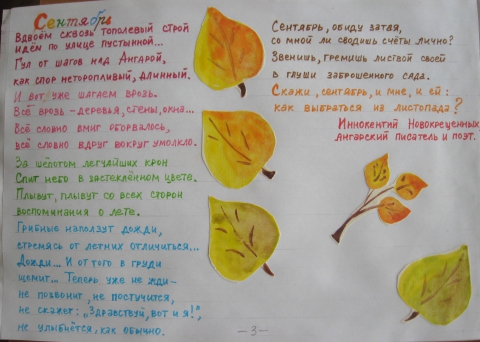 Сентябрь
Вдвоём сквозь тополевый строй
идём по улице пустынной...
Гул от шагов над Ангарой,
как спор неторопливый, длинный.
И вот уже шагаем врозь.
Всё врозь – деревья, стены, окна...
Всё словно вмиг оборвалось,
всё словно вдруг вокруг умолкло.
За шёпотом легчайших крон
Спит небо в застеклённом цвете.
Плывут, плывут со всех сторон
воспоминания о лете.
Грибные наползут дожди,
стремясь от летних отличиться...
Дожди... И от того в груди
щемит... Теперь уже не жди–
не позвонит, не постучится,
не скажет: „Здравствуй, вот и я!",
не улыбнётся, как обычно.
Сентябрь, обиду затая,
со мной ли сводишь счёты лично?
Звенишь, гремишь листвой своей
в глуши заброшенного сада.
Скажи, сентябрь, и мне, и ей:
как выбраться из листопада?
Иннокентий Новокрещенных
Ангарский писатель и поэт.
–3–